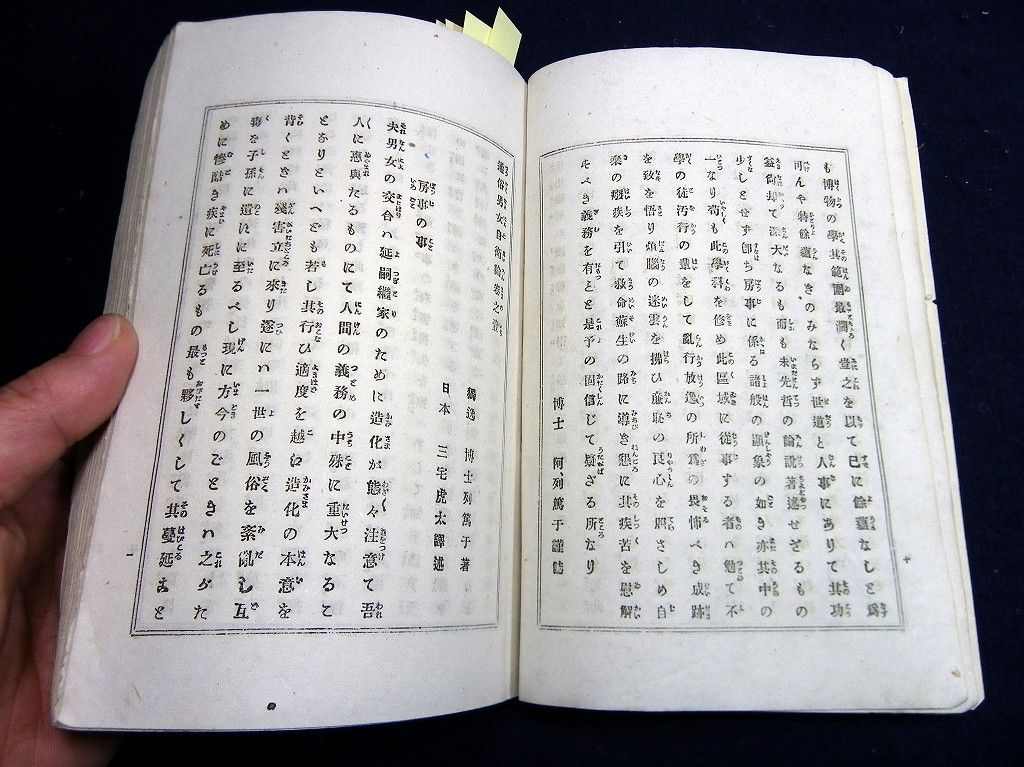 も博物の學其範圍最濶く豈之を以て已に餘蘊なしと爲
可んや特餘蘊なきのみならず世道と人事にありて其功
益尙却て深大なるも而も未先哲の論説著述せざるもの
少しとせず卽ち房事に係る諸般の顯象の如き亦其中の
一なり苟も此學科を修め此區域に從事する者ハ勉て不
學の徒汚行の輩をして亂行放逸の所爲の畏怖べき成跡
を致を悟り煩腦の迷雲を拂ひ廉恥の良心を照さしめ自
棄の癈疾を引て救命蘇生の路に導き懇に其疾苦を慰解
すべき義務を有とと是予の固信じて疑ざる所なり
博士 阿、列篤于謹誌
十
通俗男女自衛論
房事の事
獨逸 博士列篤于著
日本 三宅虎太譯述
夫男女の交合ハ延嗣繼家のために造化が態々注意て吾
人に惠與たるものにて人間の義務の中殊に重大なるこ
となりといへども若し其行ひ適度を越ゑ造化の本意を
背くときハ殘害立に來り遂にハ一世の風俗を紊亂し互
毒を子孫に遺すに至るべし現に方今のごときハ之がた
めに慘酷き疾に死亡るもの最も夥しくして其蔓延こと
一